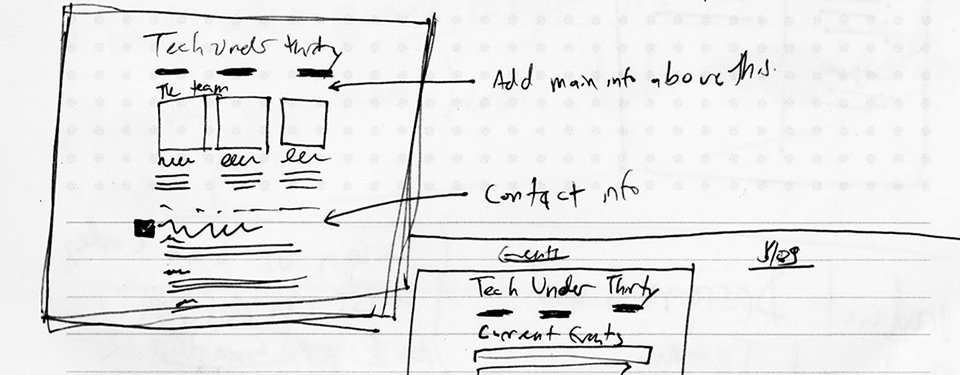 Tech Under thirty
The team
Add main info above this.
Contact info
Events
Blog
Tech Under Thirty
Current Events